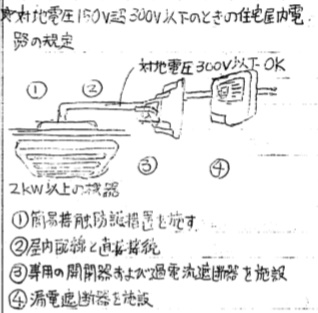 ☆対地電圧150V超300V以下のときの住宅屋内電
路の規定
対地電圧300V以下OK
① ②
③ ④
2kW以上の機器
①簡易接触防護措置を施す
②屋内配線と直接接続
③専用の開閉器および過電流遮断器を施設
④漏電遮断器を施設